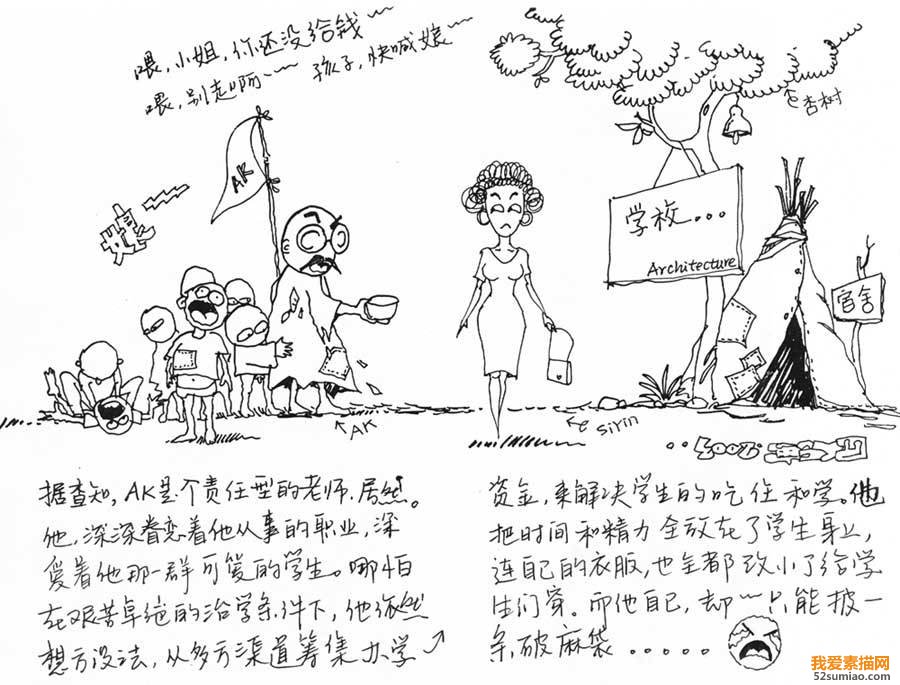 喂,小姐,你还没给钱~
喂,别走啊~~ 孩子,快喊娘~
杏树
AK
学校...
Architecture
宿舍
AK
Sirin
据查知,AK是个责任型的老师,居然。
他,深深眷恋着他从事的职业,深
爱着他那一群可爱的学生。哪怕
在艰苦卓绝的治学条件下,他依然
想方设法,从多方渠道筹集办学
资金,来解决学生的吃住和学。他
把时间和精力全放在了学生身上,
连自己的衣服,也全都改小了给学
生们穿。而他自己,却~只能披一
条破麻袋.....
我爱素描网
52sumiao.com